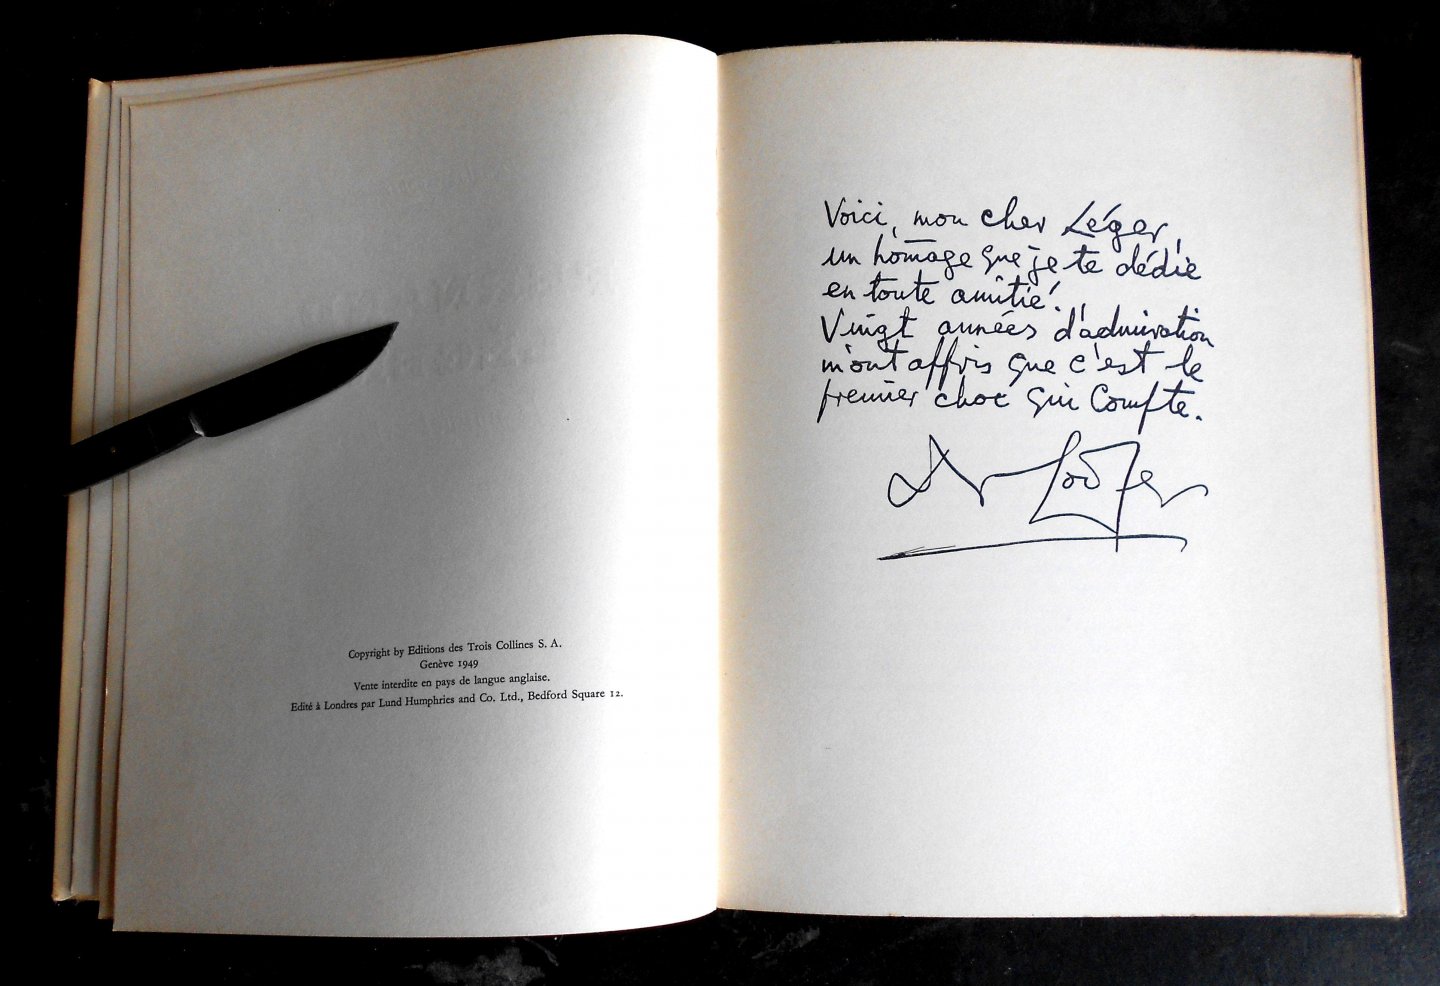 Copyright by Editions des Trois Collines S. A.
Genève 1949
Vente interdite en pays de langue anglaise.
Edité à Londres par Lund Humphries and Co. Ltd., Bedford Square 12.
Voici, mon cher Léger,
un hom̄age que je te dédie
en toute amitié!
Vingt années d'admiration
m'ont appris que c'est le
premier choc qui Compte.